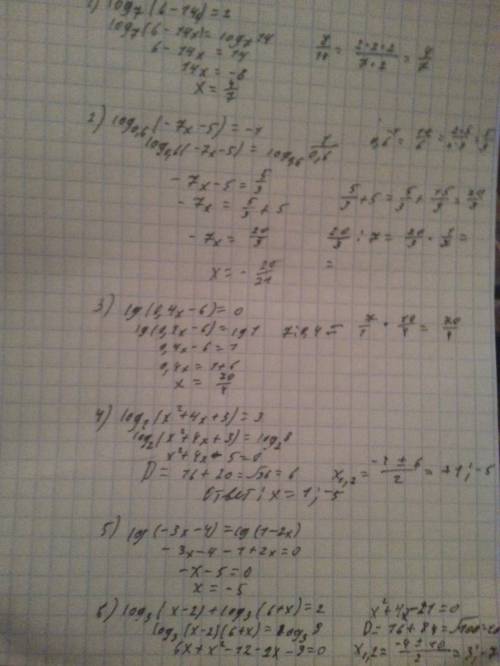 1) log₇(6-14x)=2
log₇(6-14x)=log₇14
6-14x=14
14x=-8
x=4/7
8/14 = 2·2·2/7·2 = 4/7
2) log₀,₆(-7x-5)=-1
log₀,₆(-7x-5)=log₀,₆ 1/0,6
-7x-5=5/3
-7x=5/3+5
-7x=20/3
x=-20/21
5/3+5=5/3+15/3=20/3
3) lg(0,4x-6)=0
lg(0,4x-6)=lg1
0,4x-6=1
0,4x=1+6
x=70/4
7:0,4= 7/1 · 10/4 = 70/4
4) log₂(x²+4x+3)=3
log₂(x²+4x+3)=log₂8
x²+4x-5=0
D=16+20=√36=6
x₁,₂=-4±6/2=+1;-5
Ответ: x=1;-5
5) lg(-3x-4)=lg(1-2x)
-3x-4-1+2x=0
-x-5=0
x=-5
6) log₃(x-2)+log₃(6+x)=2
log₃(x-2)(6+x)=log₃9
6x+x²-12-2x-9=0
x²+4x-21=0
D=16+84=√100=10
x₁,₂=-4±10/2=3;-7